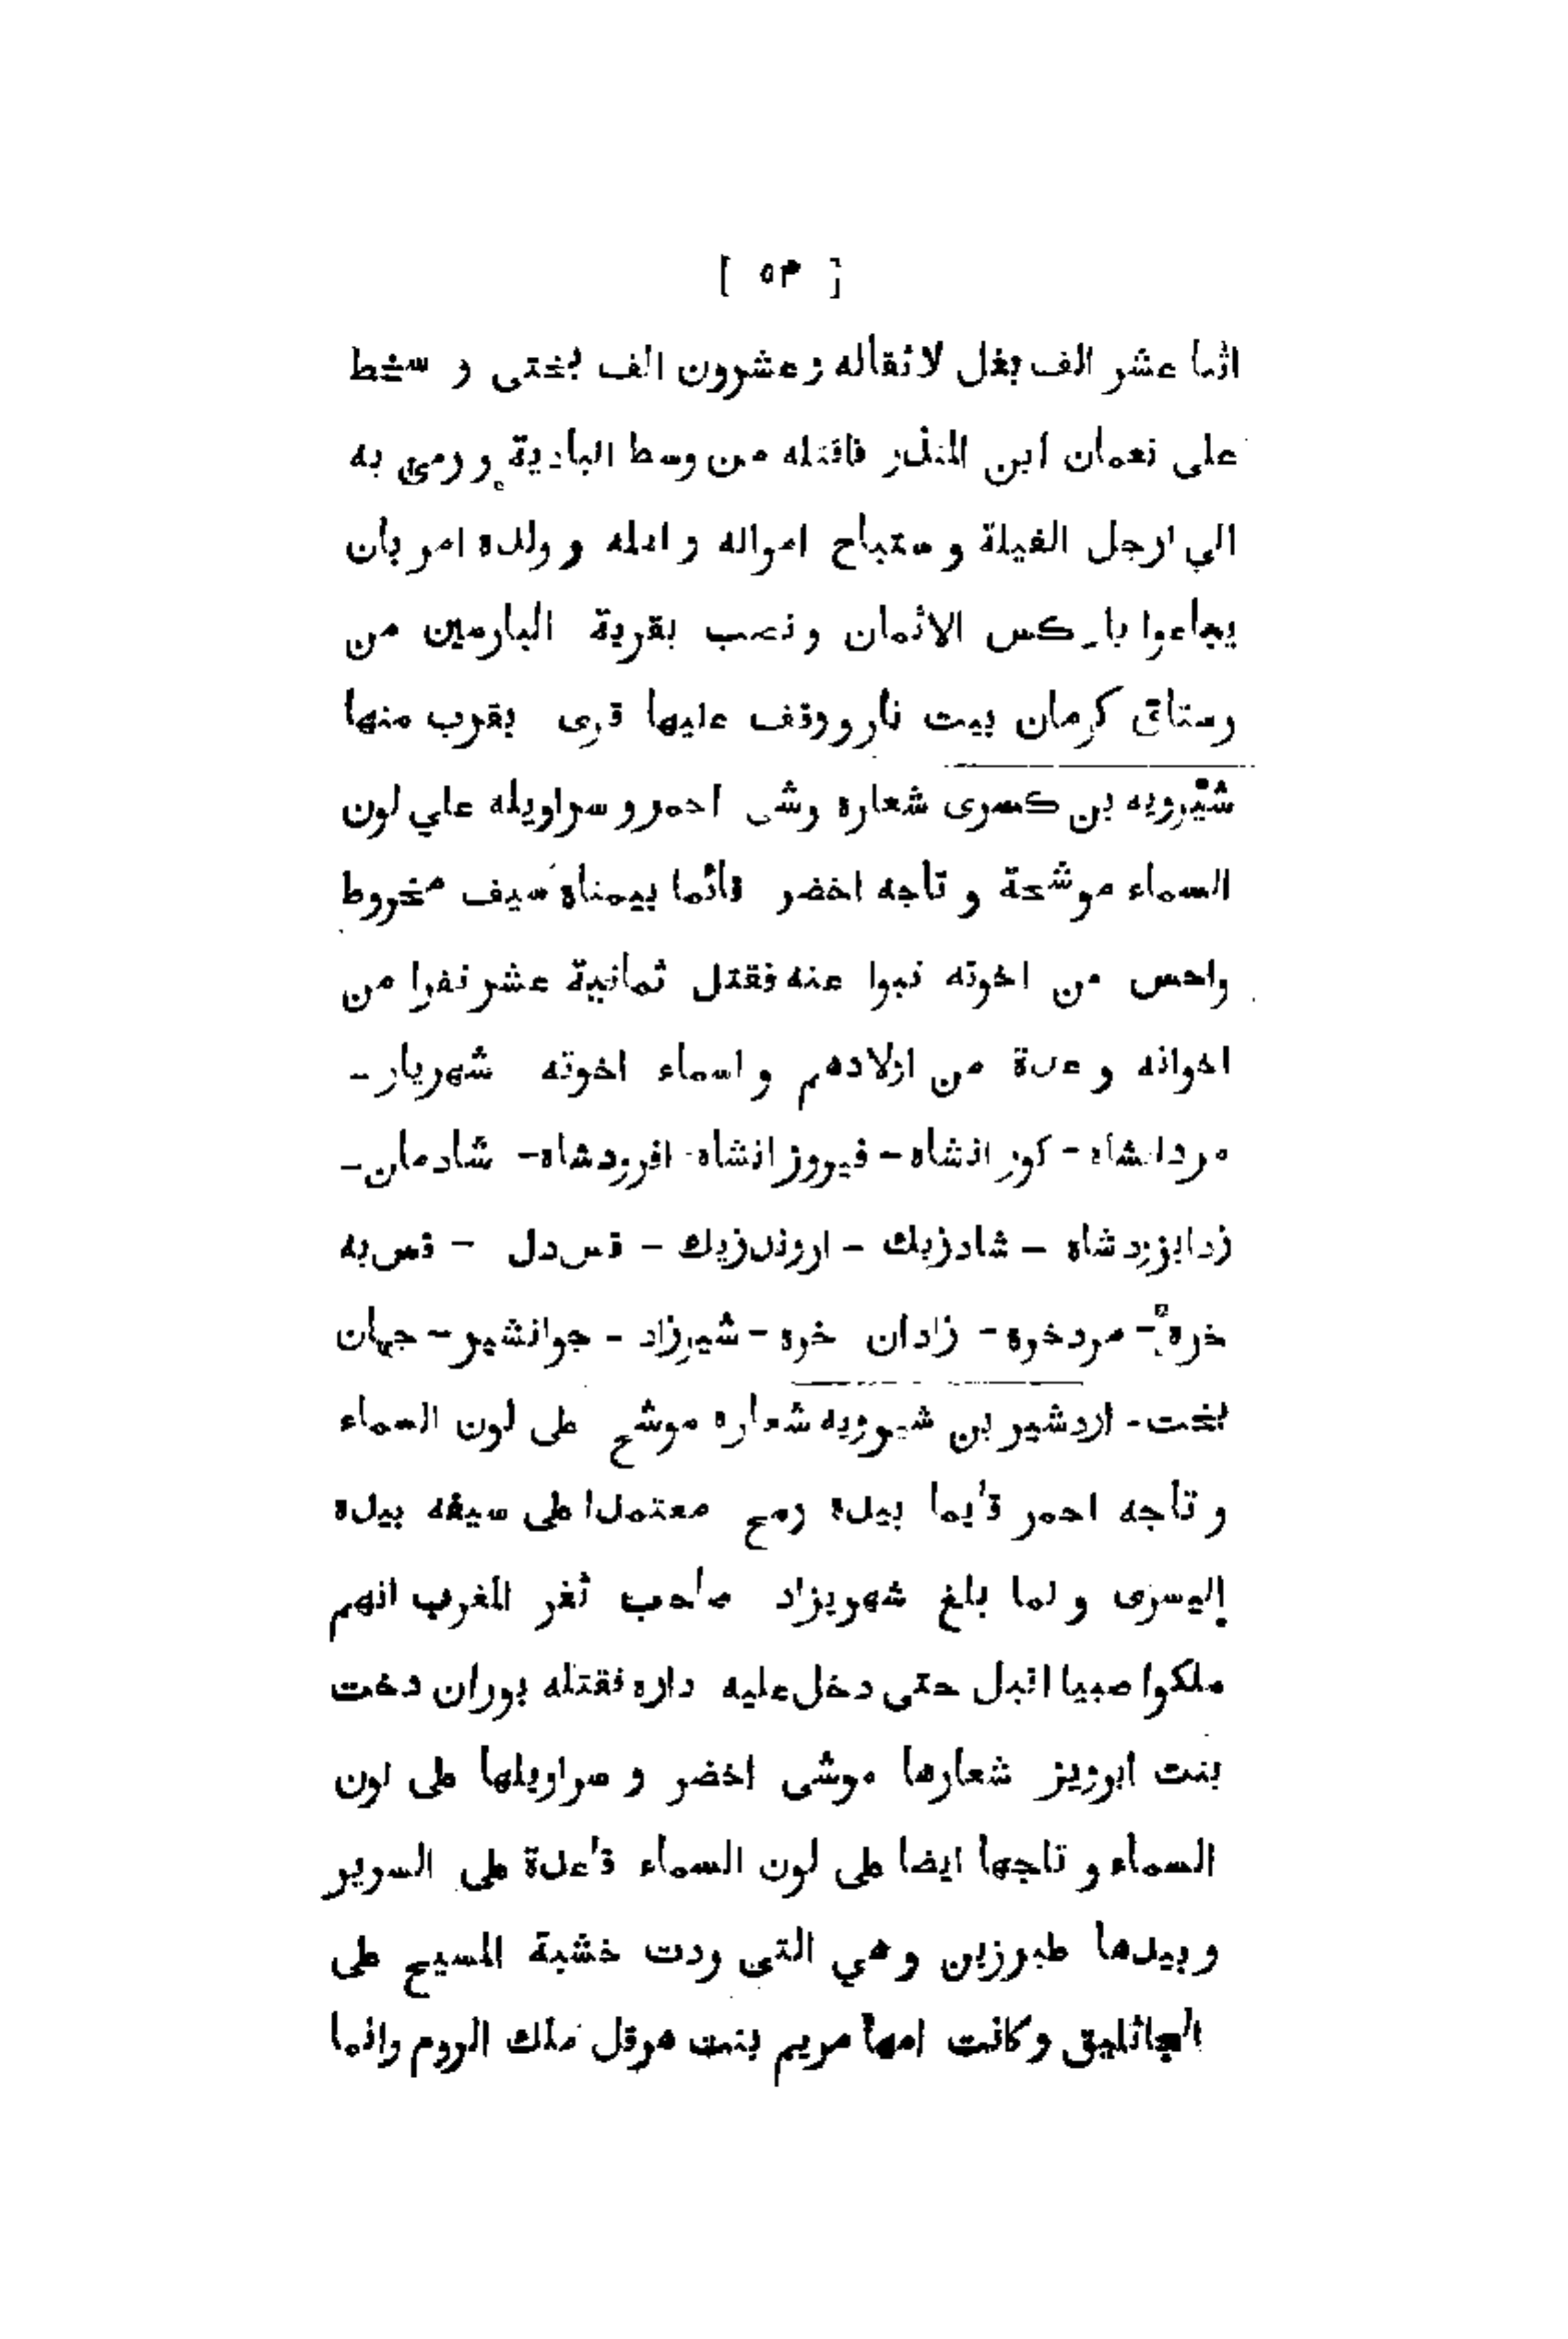 [ ٥٣ ]
اثنا عشر الف بغل لاثقاله و عشرون الف بختى و سخط
على نعمان ابن المنذر فاقتله من وسط البادية و رمى به
الي ارجل الفيلة و ستباح امواله و اهله و ولده امر بان
يباعوا باركس الاثمان و نصب بقرية البارمين من
رستاق كرمان بيت نار و وقف عليها قرى بقرب منها
شيرويه بن كسرى شعاره وشى احمر و سراويله علي لون
السماء موشحة و تاجه اخضر قائما بيمناه سيف مخروط
واحس من اخوته نبوا عنه فقتل ثمانية عشر نفرا من
اخوانه و عدة من اولادهم و اسماء اخوته شهريار -
مردانشاه - كورانشاه - فيروزانشاه - افرودشاه - شادمان -
زدابزردشاه - شادزيك - اروندزيك - قس دل - قس به
خره - مردخره - زادان خره - شيرزاد - جوانشير - جهان
بخت - اردشير بن شيرويه شعاره موشح على لون السماء
و تاجه احمر قايما بيده رمح معتمدا على سيفه بيده
اليسرى و لما بلغ شهريزاد صاحب ثغر المغرب انهم
ملكوا صبيا اقبل حتى دخل عليه داره فقتله بوران دخت
بنت ابرويز شعارها موشى اخضر و سراويلها على لون
السماء و تاجها ايضا على لون السماء قاعدة على السرير
و بيدها طبرزين و هي التى ردت خشبة المسيح على
الجاثليق و كانت امها مريم بنت هرقل ملك الروم و انما